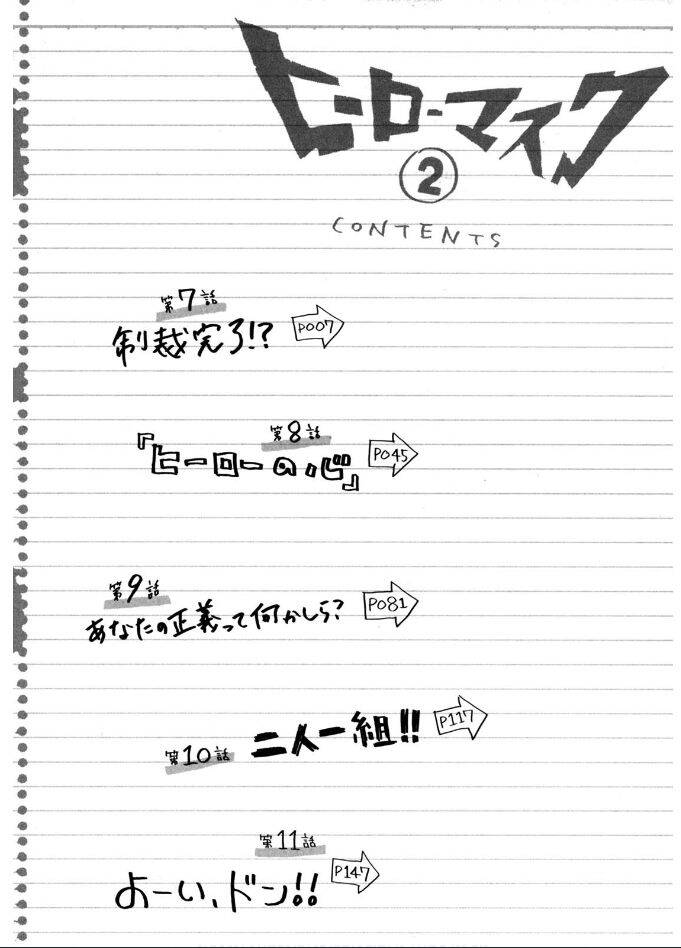 ヒーローマスク
②
CONTENTS
第7話
制裁完了!?
P007
第8話
『ヒーローのくび』
P045
第9話
あなたの正義って何かしら?
P081
第10話 二人一組!!
P117
第11話
よーい、ドン!!
P147